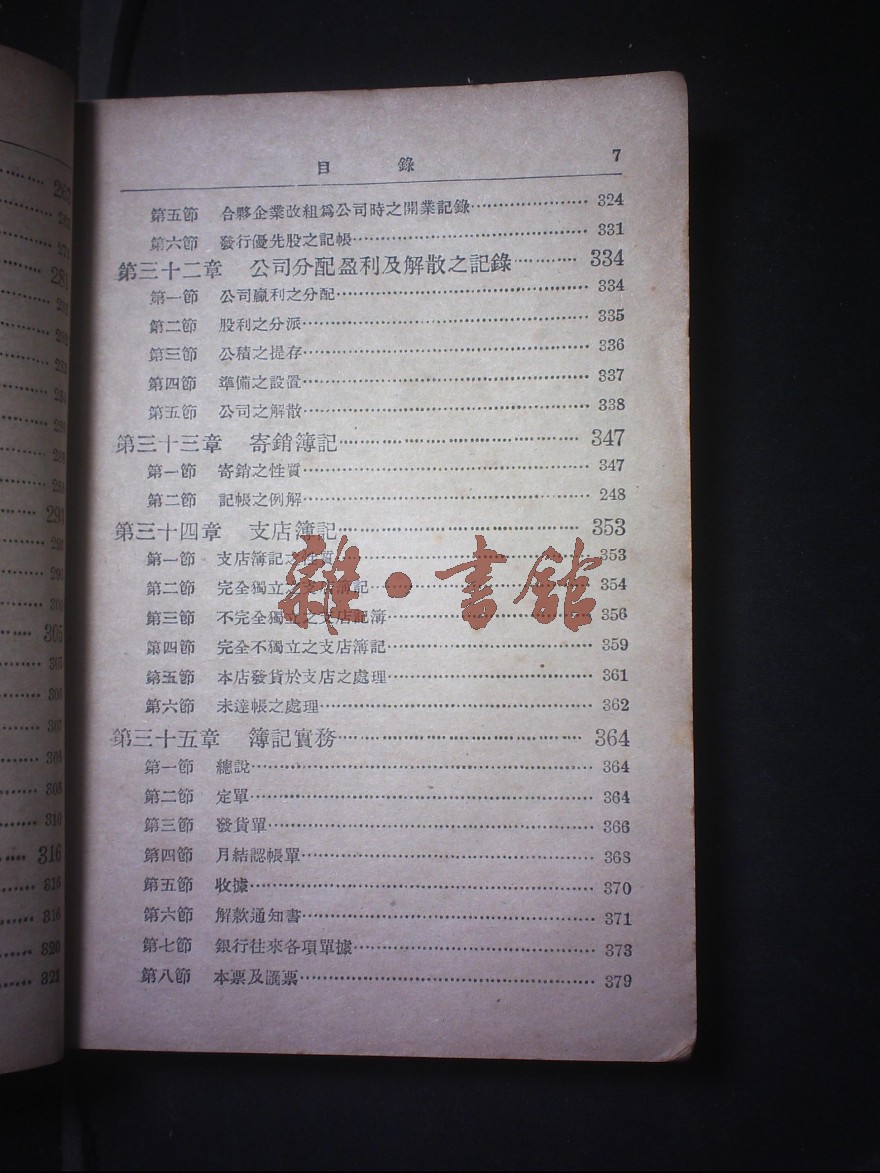 目 錄 7
第五節 合夥企業改組爲公司時之開業記錄 324
第六節 發行優先股之記帳 331
第三十二章 公司分配盈利及解散之記錄 334
第一節 公司贏利之分配 334
第二節 股利之分派 335
第三節 公積之提存 336
第四節 準備之設置 337
第五節 公司之解散 338
第三十三章 寄銷簿記 347
第一節 寄銷之性質 347
第二節 記帳之例解 248
第三十四章 支店簿記 353
第一節 支店簿記之性質 353
第二節 完全獨立之支店簿記 354
第三節 不完全獨立之支店記簿 356
第四節 完全不獨立之支店簿記 359
第五節 本店發貨於支店之處理 361
第六節 未達帳之處理 362
第三十五章 簿記實務 364
第一節 總說 364
第二節 定單 364
第三節 發貨單 366
第四節 月結認帳單 368
第五節 收據 370
第六節 解款通知書 371
第七節 銀行往來各項單據 373
第八節 本票及匯票 379
雜·書館
305
316
316
316
320
321